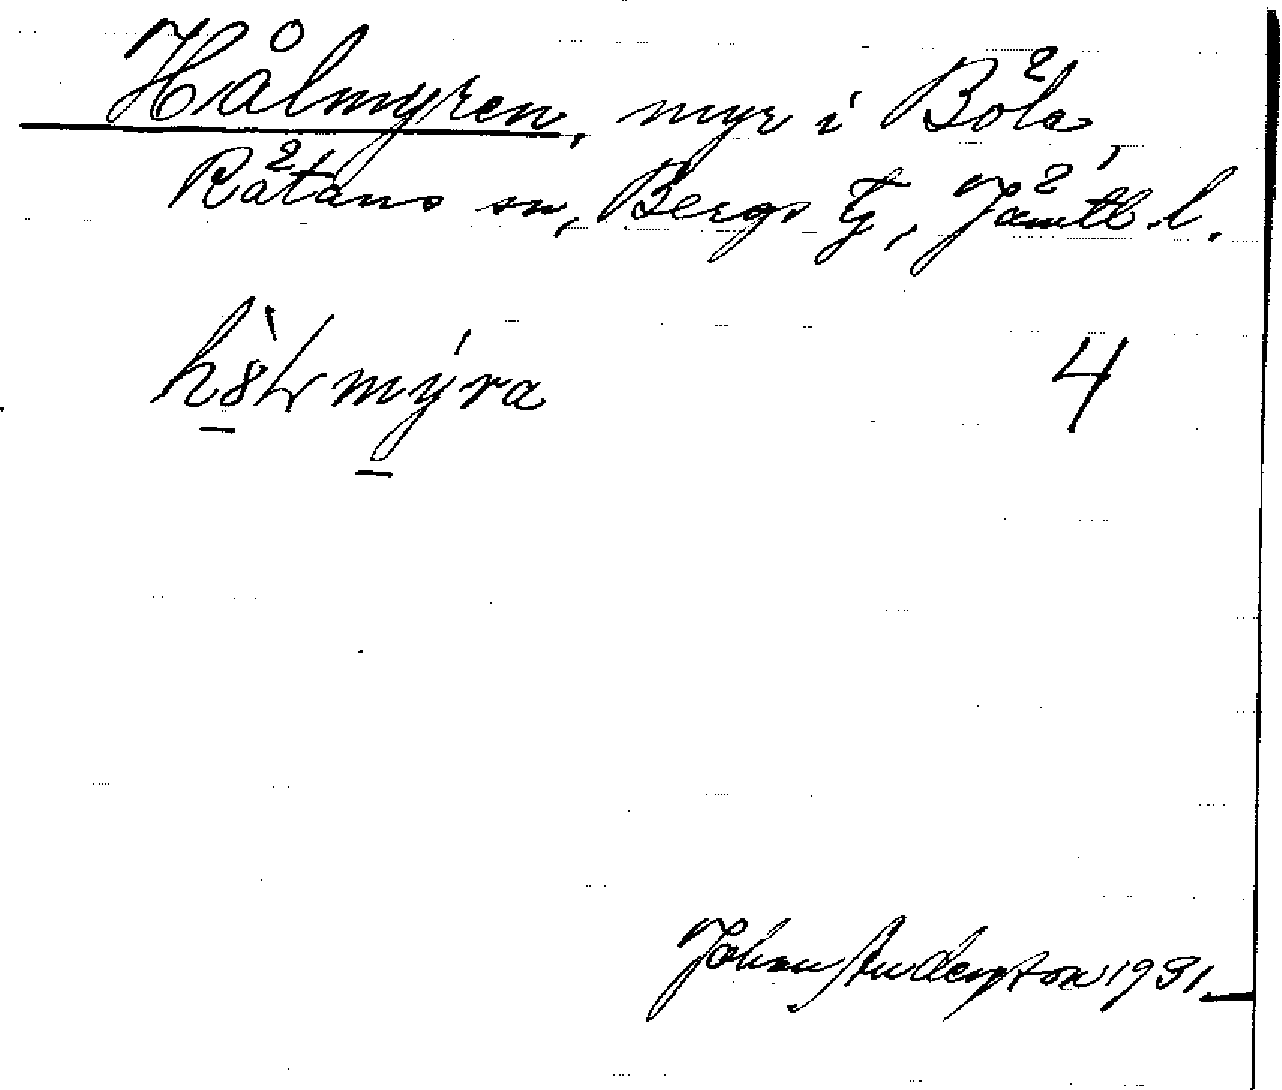 Hålmyren, myr i Böle,
Rätans sn, Bergs tg, Jämtl. l.
4
Johan Anderson 1931.